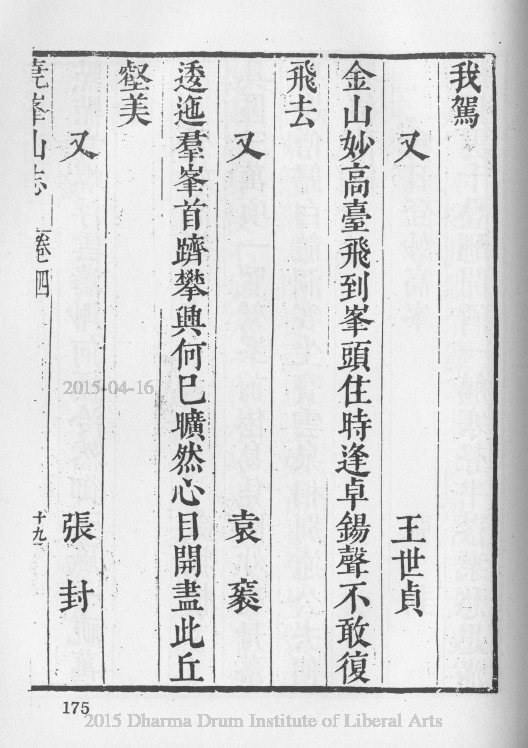 我駕
又 王世貞
金山妙高臺飛到峯頭住時逢卓錫聲不敢復
飛去
又 袁袠
逶迤羣峯首躋攀興何已曠然心目開盡此丘
壑美
又 張封
堯峯山志 卷四 十九
175
2015-04-16
2015 Dharma Drum Institute of Liberal Arts